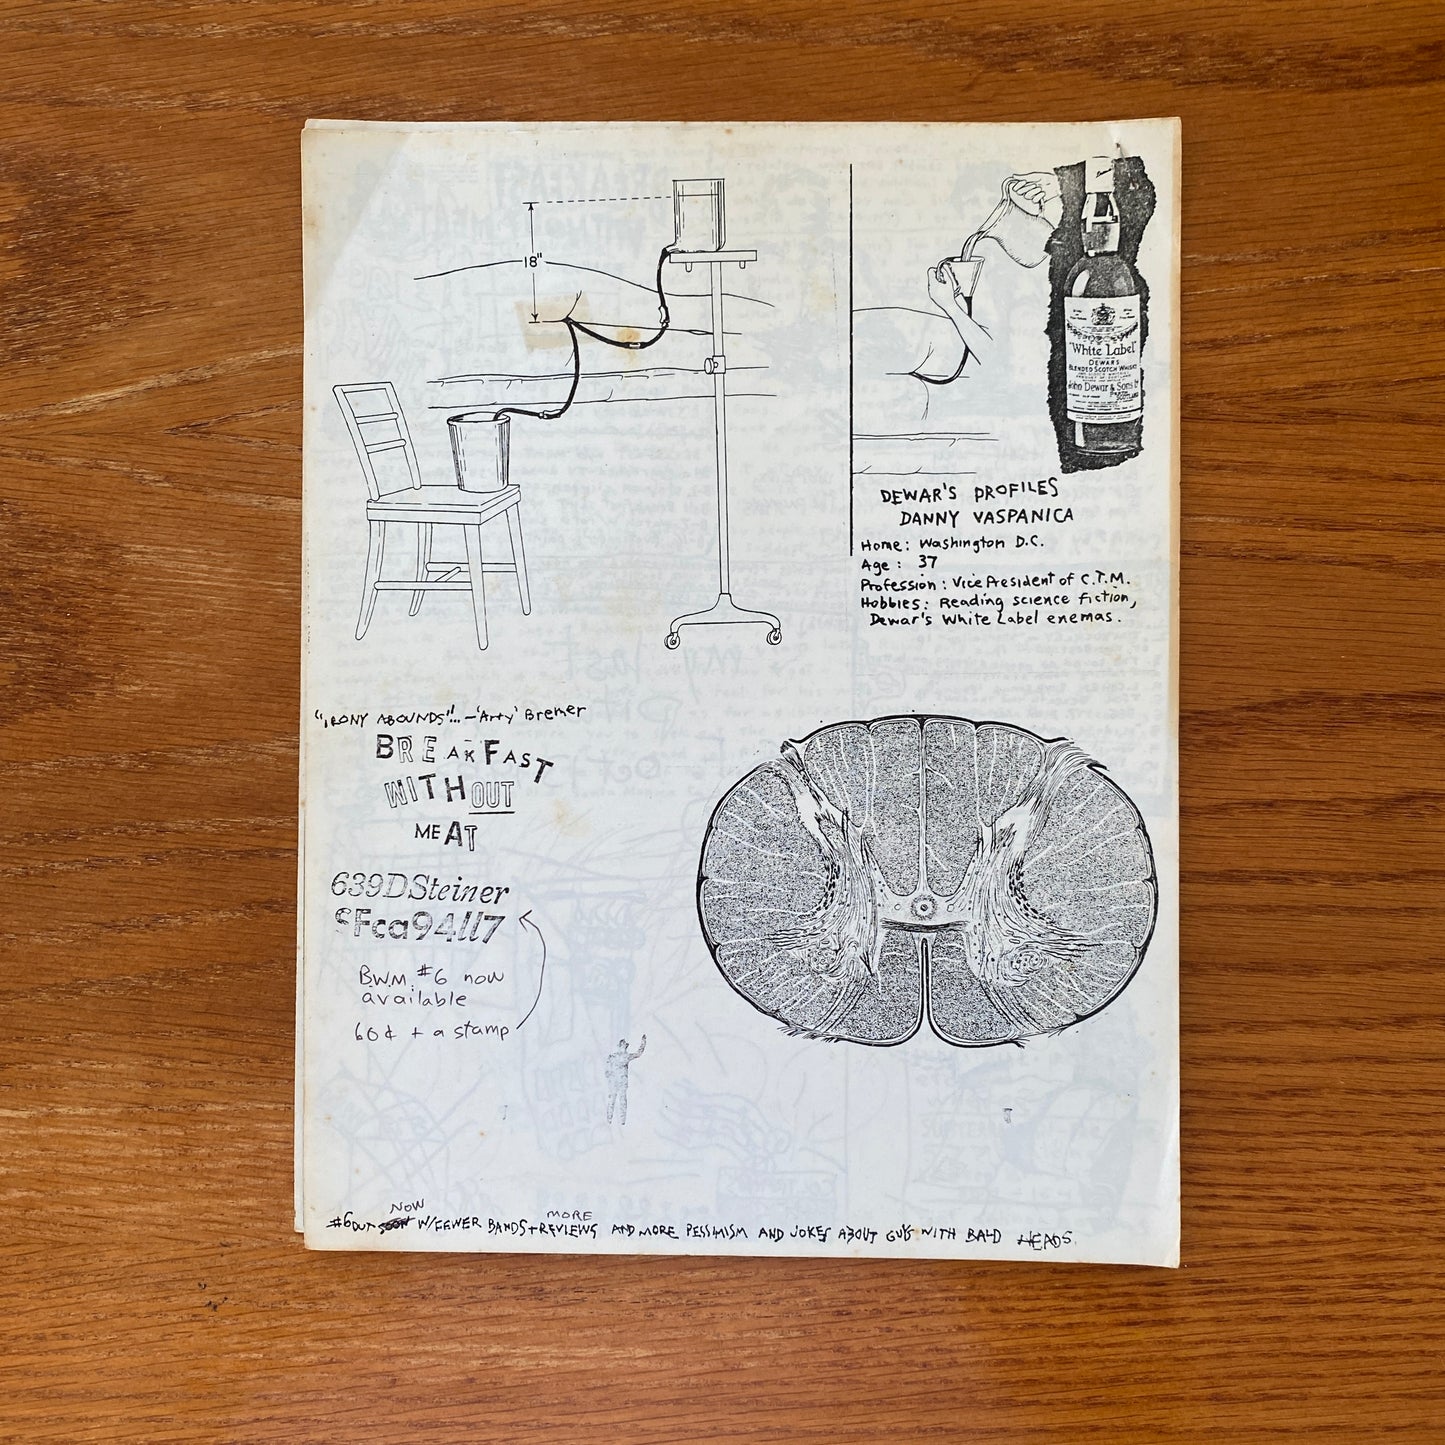 18"
"White Label"
DEWARS
BLENDED SCOTCH WHISKY
John Dewar & Sons Ltd
DEWAR'S PROFILES
DANNY VASPANICA
Home: Washington D.C.
Age: 37
Profession: Vice President of C.T.M.
Hobbies: Reading science fiction,
Dewar's White Label enemas.
"IRONY ABOUNDS"... - 'Arty' Bremer
BREAKFAST
WITHOUT
MEAT
639DSteiner
SFca94117
B.W.M. #6 now
available
60¢ + a stamp
NOW
MORE
#6 OUT SOON W/FEWER BANDS + REVIEWS AND MORE PESSIMISM AND JOKES ABOUT GUYS WITH BALD HEADS.